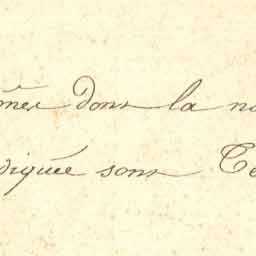 ômés dont la no
diquée sont Ce